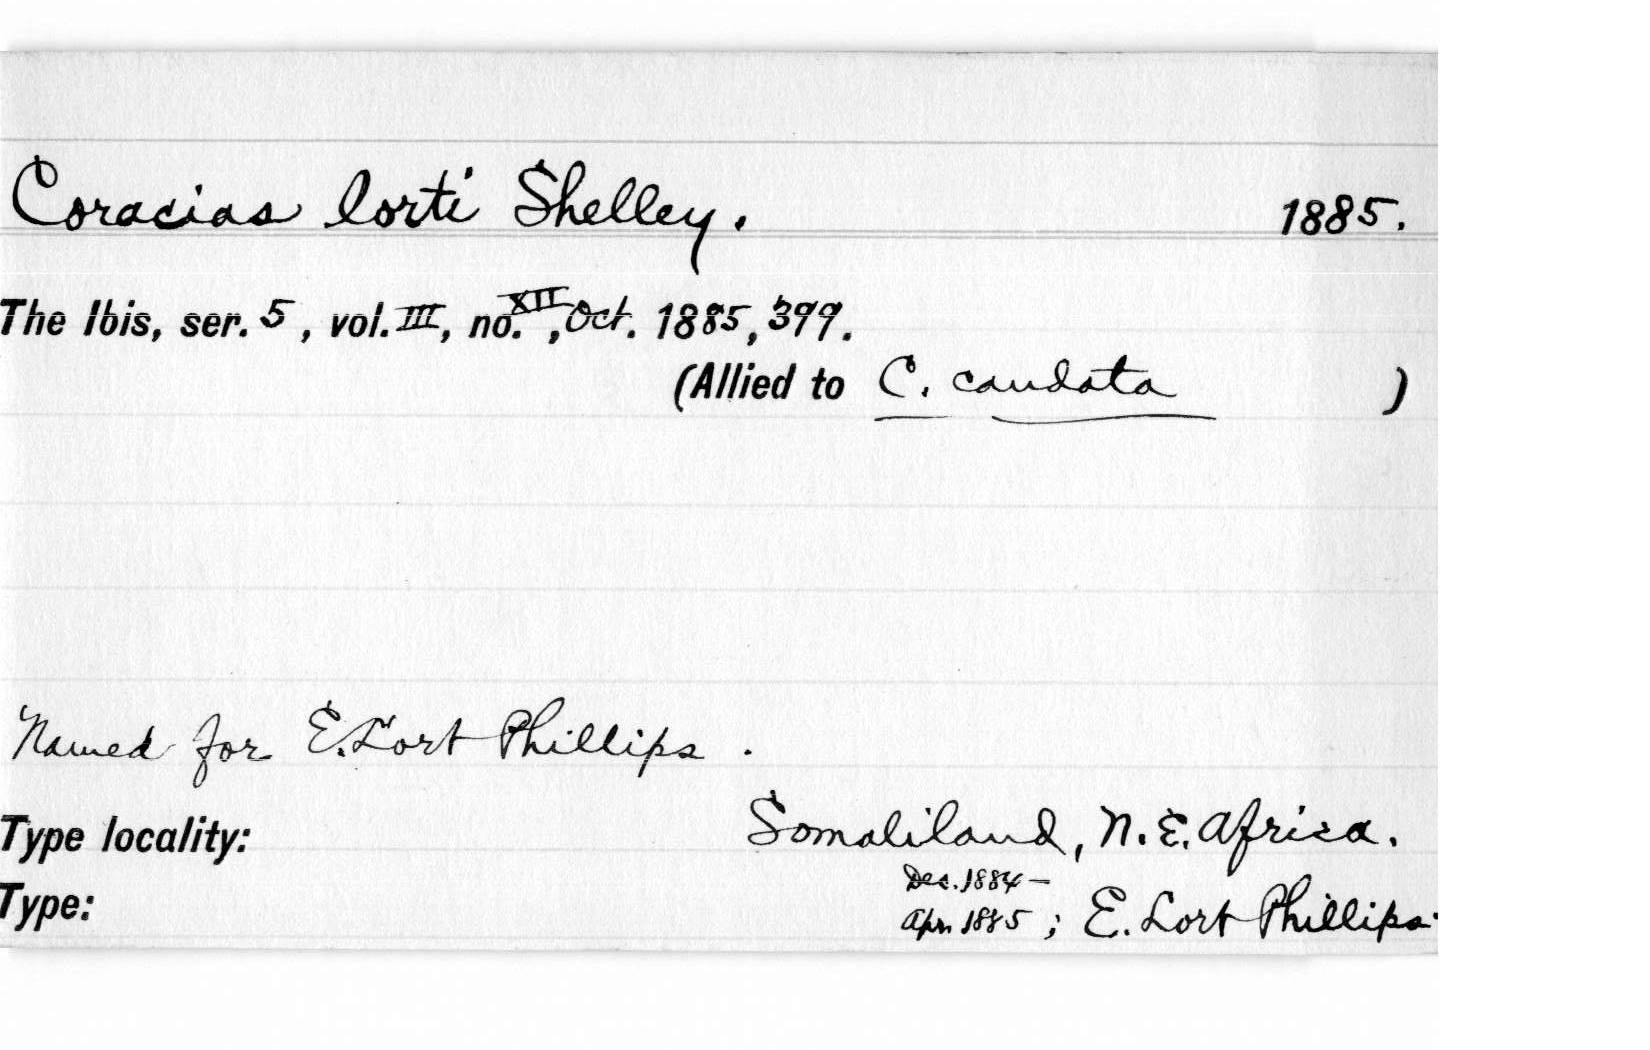 Coracias lorti Shelley. 1885.
The Ibis, ser. 5, vol. III, no. XII, Oct. 1885, 399.
(Allied to C. caudata )
Named for E. Lort Phillips.
Type locality: Somaliland, N.E. Africa.
Dec. 1884 –
Type: Apr. 1885; E. Lort Phillips.